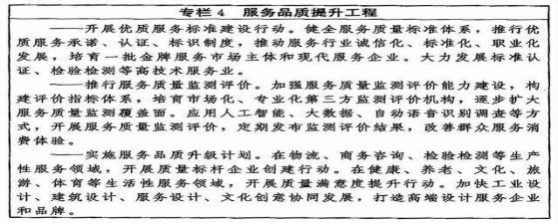 专栏4 服务品质提升工程
——开展优质服务标准建设行动。健全服务质量标准体系，推行优
质服务承诺、认证、标识制度，推动服务行业诚信化、标准化、职业化
发展，培育一批金牌服务市场主体和现代服务企业。大力发展标准认
证、检验检测等高技术服务业。
——推行服务质量监测评价。加强服务质量监测评价能力建设，构
建评价指标体系，培育市场化、专业化第三方监测评价机构，逐步扩大
服务质量监测覆盖面。应用人工智能、大数据、自动语音识别调查等方
式，开展服务质量监测评价，定期发布监测评价结果，改善群众服务消
费体验。
——实施服务品质升级计划。在物流、商务咨询、检验检测等生产
性服务领域，开展质量标杆企业创建行动。在健康、养老、文化、旅
游、体育等生活性服务领域，开展质量满意度提升行动。加快工业设
计、建筑设计、服务设计、文化创意协同发展，打造高端设计服务企业
和品牌。